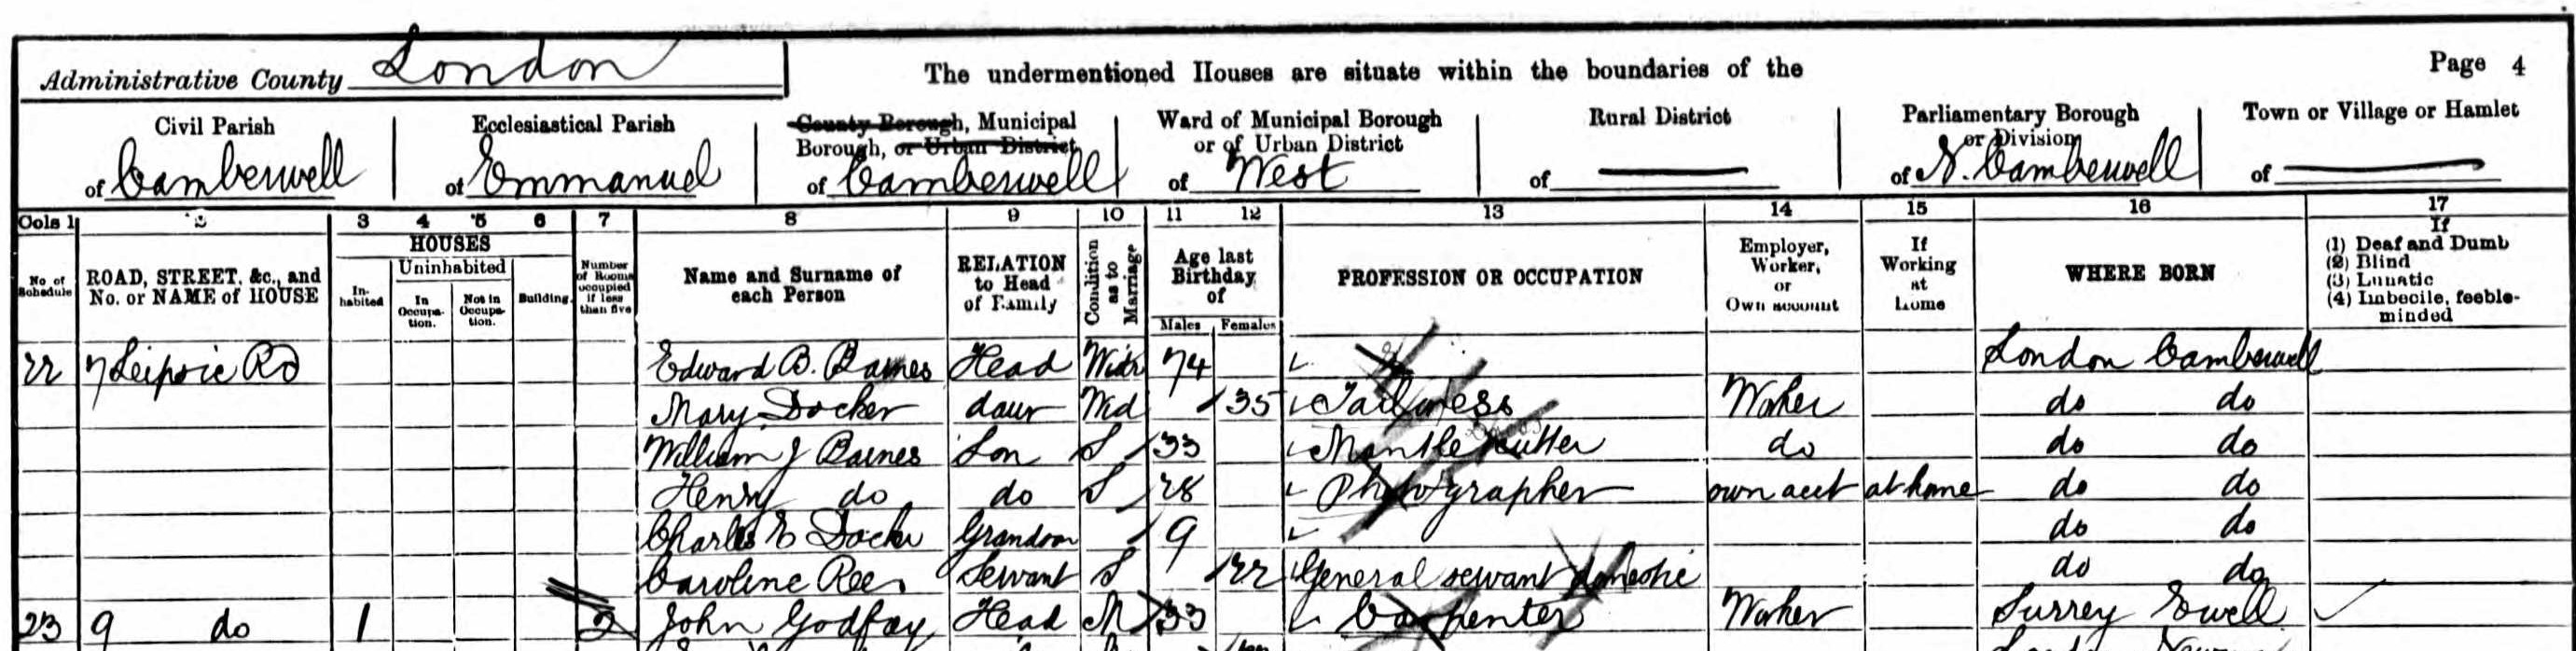 Administrative County London
The undermentioned Houses are situate within the boundaries of the
Page 4
Civil Parish
of Camberwell
Ecclesiastical Parish
of Emmanuel
County Borough, Municipal
Borough, or Urban District
of Camberwell
Ward of Municipal Borough
or of Urban District
of West
Rural District
of
Parliamentary Borough
or Division
of N. Camberwell
Town or Village or Hamlet
of
Cols 1 2 3 4 5 6 7 8 9 10 11 12 13 14 15 16 17
No of
Schedule
ROAD, STREET, &c., and
No. or NAME of HOUSE
HOUSES
In-
habited
Uninhabited
In
Occupa-
tion.
Not in
Occupa-
tion.
Building.
Number
of Rooms
occupied
if less
than five
Name and Surname of
each Person
RELATION
to Head
of Family
Condition
as to
Marriage
Age last
Birthday
of
Males Females
PROFESSION OR OCCUPATION
Employer,
Worker,
or
Own account
If
Working
at
Home
WHERE BORN
If
(1) Deaf and Dumb
(2) Blind
(3) Lunatic
(4) Imbecile, feeble-
minded
22 7 Leipsic Rd Edward B. Barnes Head Widr 74 London Camberwell
Mary Docker daur Wid 35 Tailoress Worker do do
William J Barnes Son S 33 Mantle Cutter do do do
Henry do do S 28 Photographer own acct at home do do
Charles E Docker Grandson 9 do do
Caroline Ree Servant S 22 General servant domestic do do
23 9 do 1 2 John Godfray Head M 33 Carpenter Worker Surrey Ewell